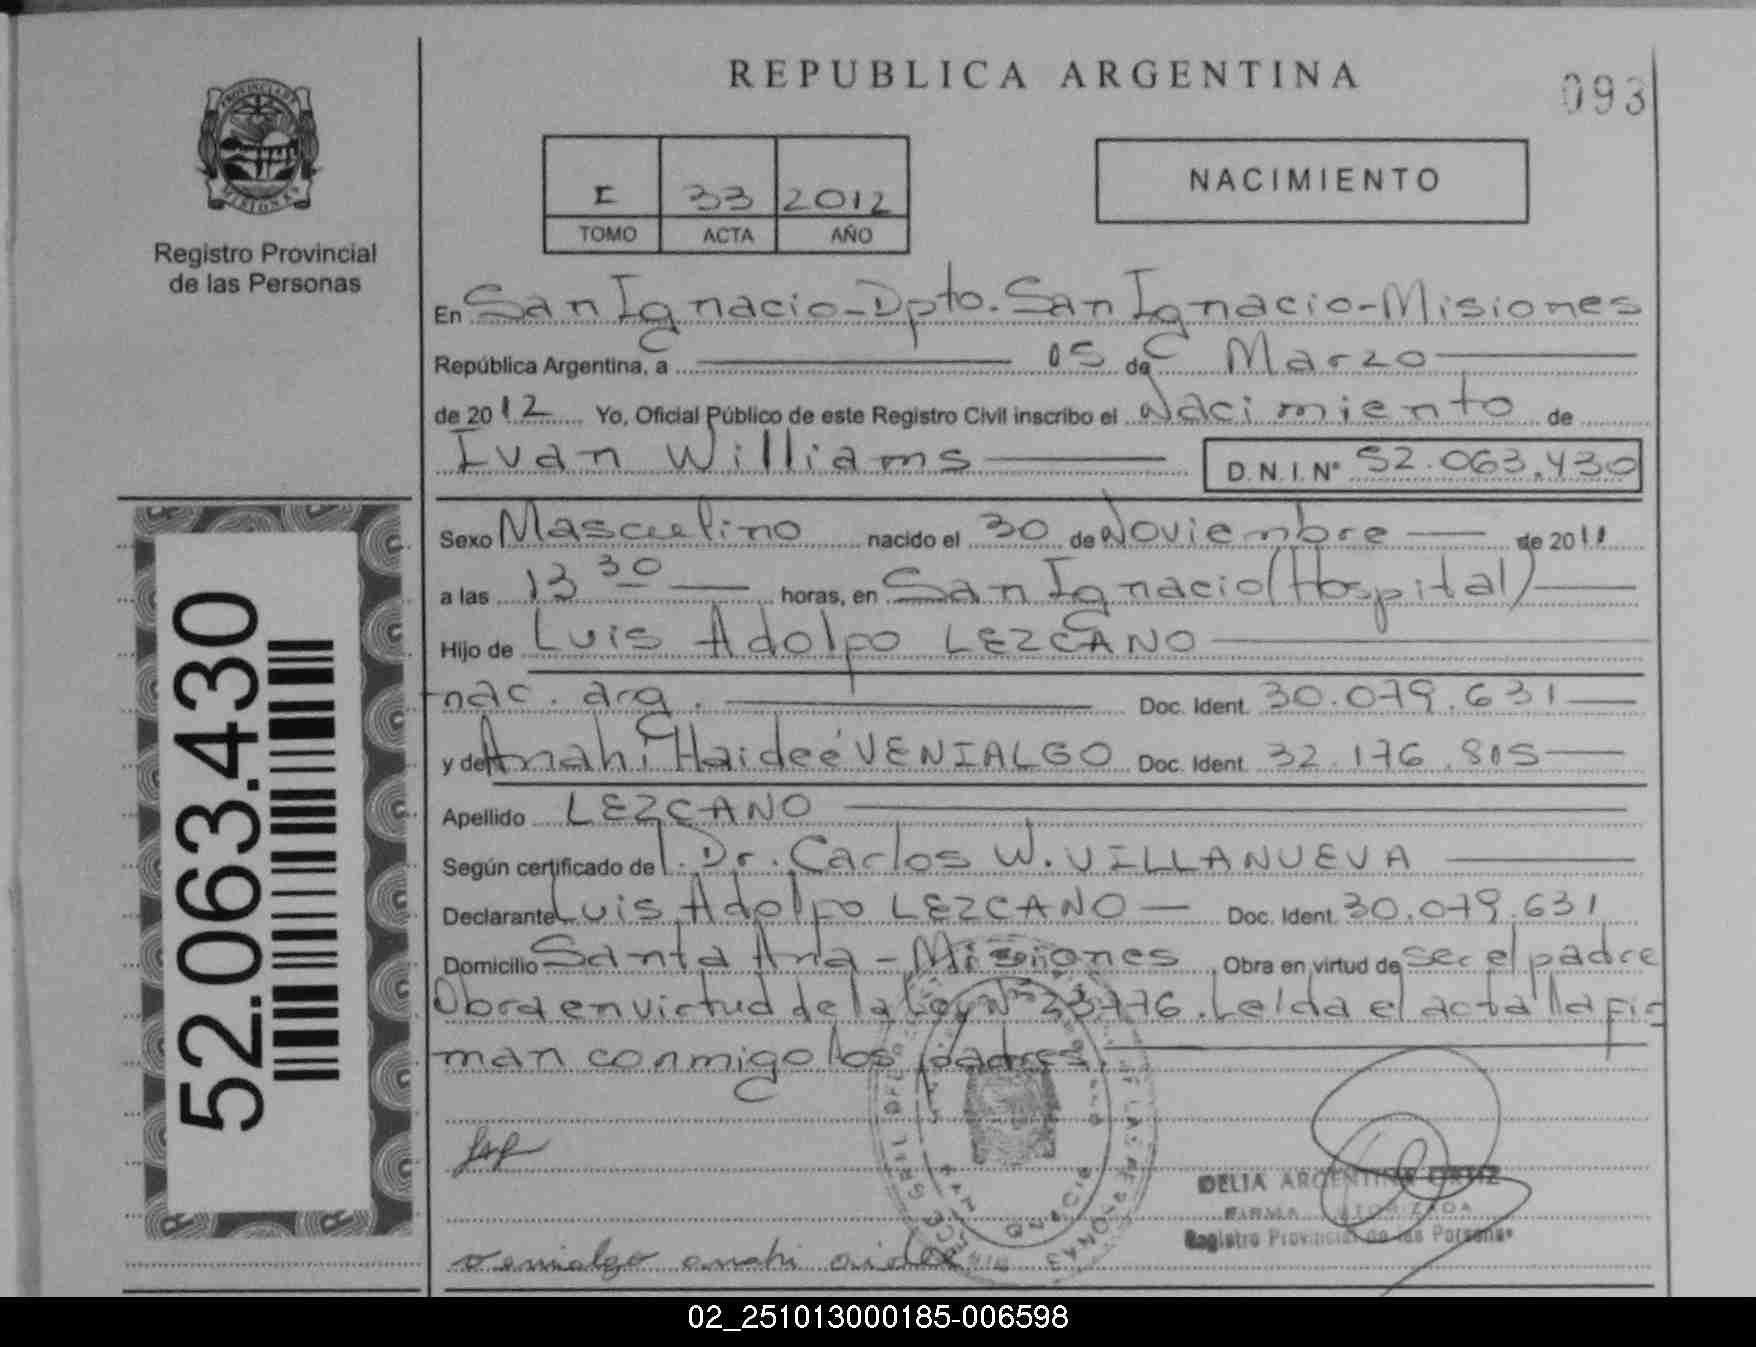 REPUBLICA ARGENTINA
093
PROVINCIA DE
MISIONES
Registro Provincial
de las Personas
I 33 2012
TOMO ACTA AÑO
NACIMIENTO
En San Ignacio-Dpto. San Ignacio-Misiones
República Argentina, a 05 de Marzo
de 2012 Yo, Oficial Público de este Registro Civil inscribo el Nacimiento de
Ivan Williams
D.N.I.Nº 52.063.430
Sexo Masculino nacido el 30 de Noviembre de 2011
a las 13 30 horas, en San Ignacio (Hospital)
Hijo de Luis Adolfo LEZCANO
nac. arg. Doc. Ident. 30.079.631
y de Anahi Haideé VENIALGO Doc. Ident. 32.176.805
Apellido LEZCANO
Según certificado del Dr. Carlos W. VILLANUEVA
Declarante Luis Adolfo LEZCANO Doc. Ident. 30.079.631
Domicilio Santa Ana - Misiones Obra en virtud de ser el padre
Obra en virtud de la Ley Nº 23776. Leída el acta la fir
man conmigo los padres.
52.063.430
DELIA ARGENTINA ORTIZ
FIRMA AUTORIZADA
Registro Provincial de las Personas
venialgo anahi aidee
02_251013000185-006598